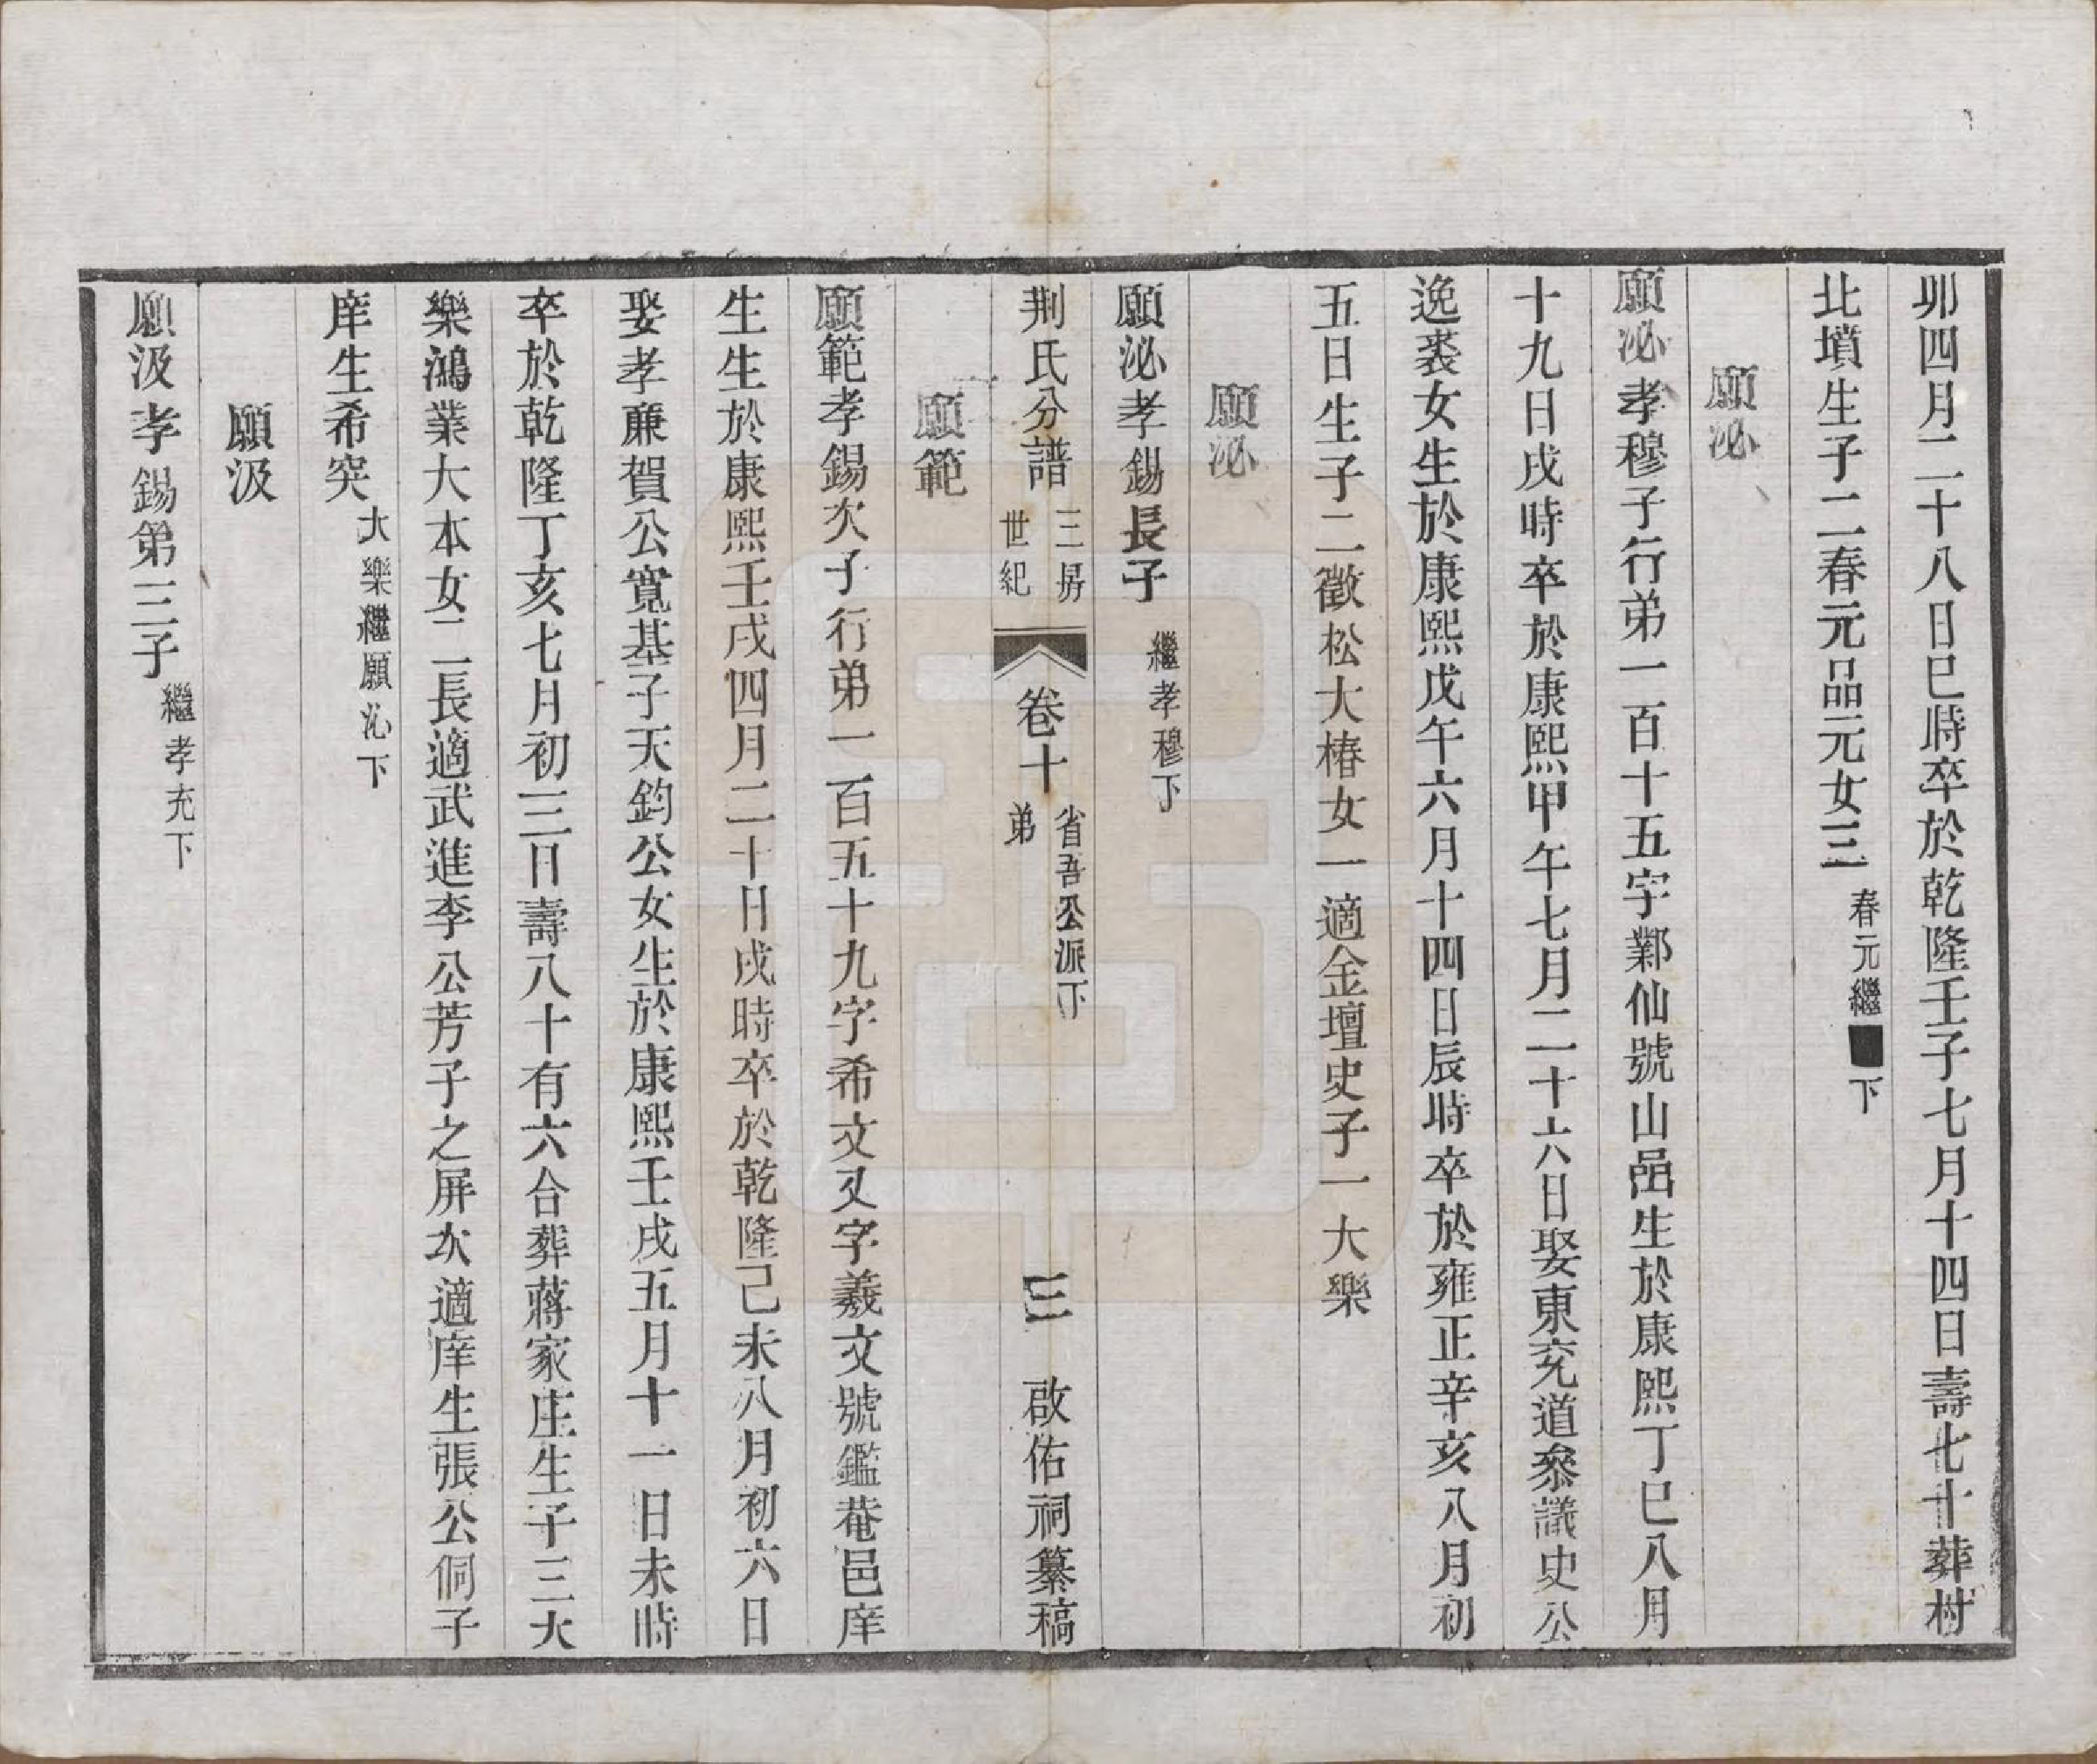 卯四月二十八日巳時卒於乾隆壬子七月十四日壽七十葬村
北墳生子二春元品元女三 春元繼■下
願泌
願泌孝穆子行弟一百十五字鄴仙號山嵒生於康熙丁巳八月
十九日戌時卒於康熙甲午七月二十六日娶東兖道叅議史公
逸裘女生於康熙戊午六月十四日辰時卒於雍正辛亥八月初
五日生子二徵松大椿女一適金壇史子一大樂
願泌
願泌孝錫長子 繼孝穆下
荆氏分譜 三房世紀 卷十 省吾公派下弟 三 啟佑祠纂稿
願範
願範孝錫次子行弟一百五十九字希文又字羲文號鑑菴邑庠
生生於康熙壬戌四月二十日戌時卒於乾隆己未八月初六日
娶孝亷賀公寬基子天鈞公女生於康熙壬戌五月十一日未時
卒於乾隆丁亥七月初三日壽八十有六合葬蔣家庄生子三大
樂鴻業大本女二長適武進李公芳子之屏次適庠生張公侗子
庠生希突 大樂繼願沁下
願汲
願汲孝錫第三子 繼孝充下